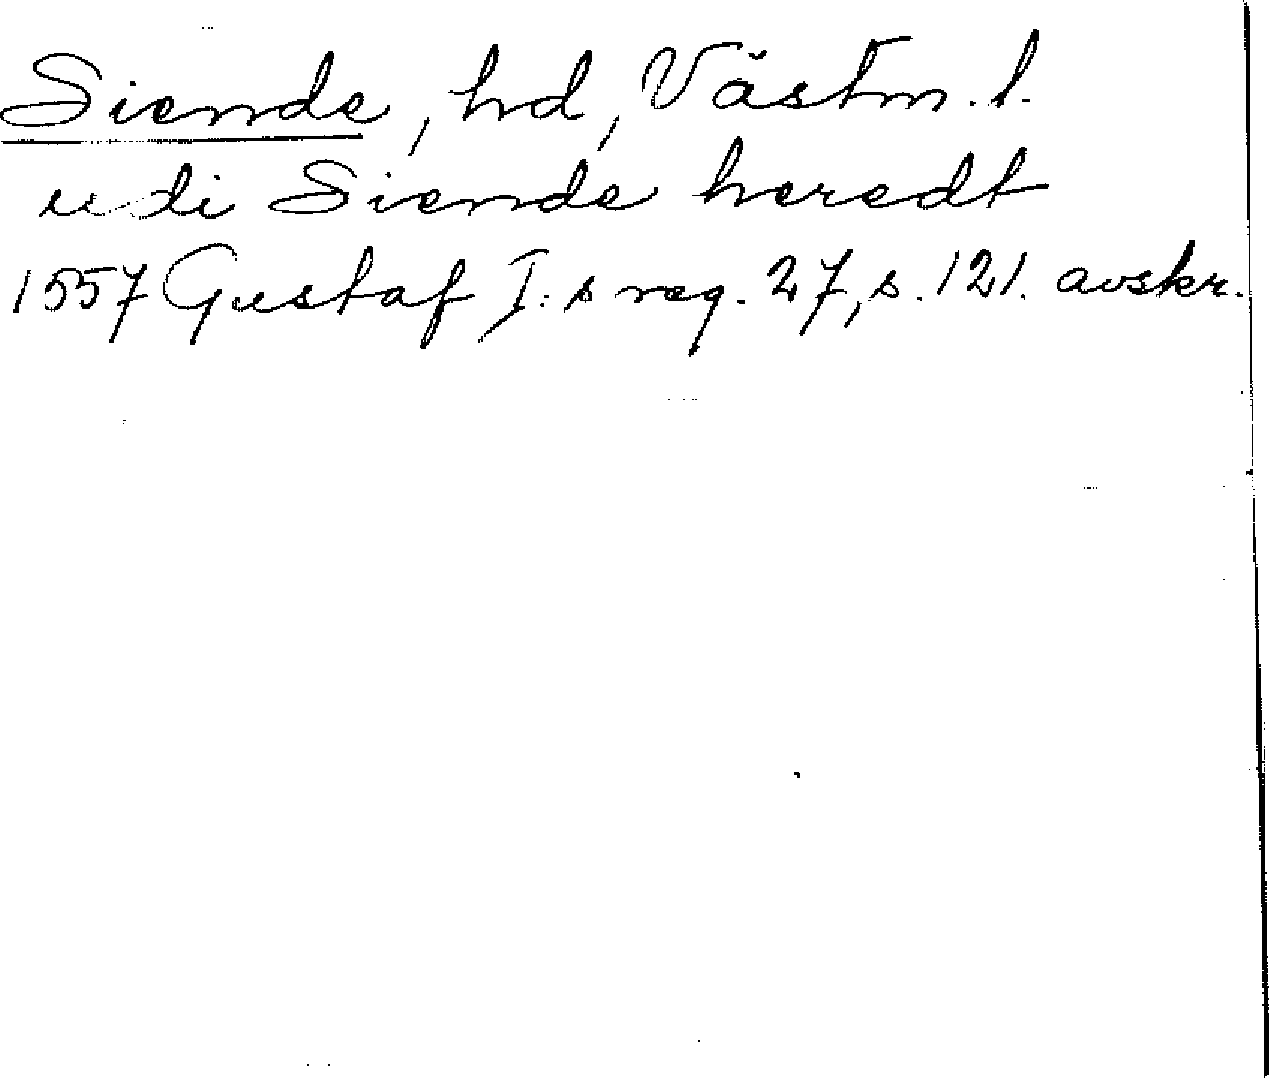 Siende, hd, Västm. l.
udi Siende heredt
1557 Gustaf I:s reg. 27, s. 121. avskr.